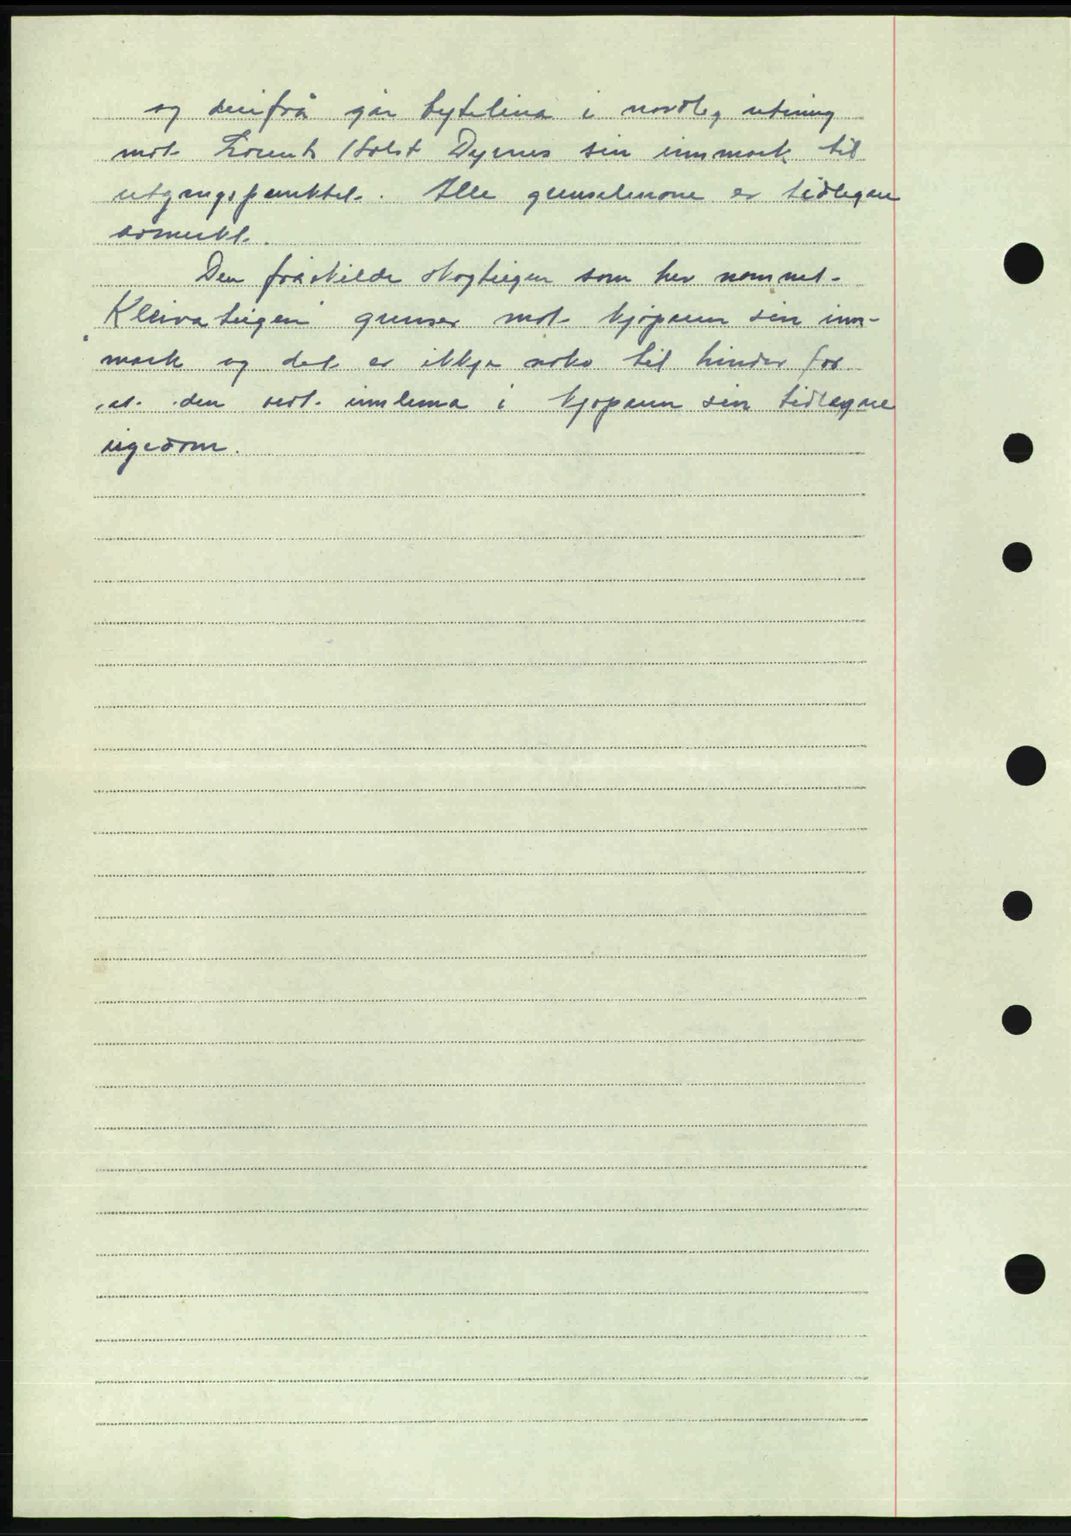 og derifrå går bytelina i nordleg retning
mot Lorents Holst Dyrnes sin innmark til
utgangspunktet. Alle grenselinone er tidlegare
avmerkt.
Den fråskilde skogteigen som her nemnet
Kleivateigen grenser mot kjøparen sin inn-
mark og det er ikkje noko til hinder for
at den vert innlema i kjøparen sin tidlegare
eigedom.